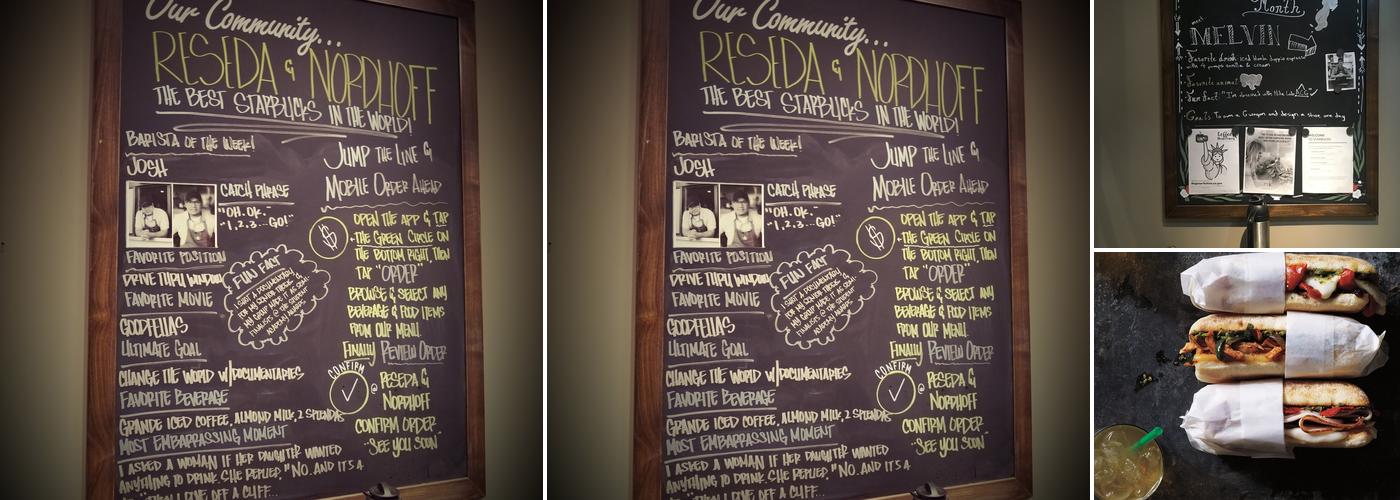 Our Community...
RESEDA & NORDHOFF
THE BEST STARBUCKS IN THE WORLD!
BARISTA OF THE WEEK!
JOSH
CATCH PHRASE
"OH. OK."
"1, 2, 3... GO!"
FAVORITE POSITION
DRIVE THRU WINDOW
FAVORITE MOVIE
GOODFELLAS
ULTIMATE GOAL
CHANGE THE WORLD W/DOCUMENTARIES
FAVORITE BEVERAGE
GRANDE ICED COFFEE, ALMOND MILK, 2 SPLENDA
MOST EMBARRASSING MOMENT
I ASKED A WOMAN IF HER DAUGHTER WANTED
ANYTHING TO DRINK. SHE REPLIED, "NO. AND IT'S A
FUN FACT
I SHOT A DOCUMENTARY
FOR MY
MY GROUP MADE IT AS
FINALISTS @ THE STUDENT
ACADEMY AWARDS
JUMP THE LINE &
MOBILE ORDER AHEAD
OPEN THE APP & TAP
THE GREEN CIRCLE ON
THE BOTTOM RIGHT, THEN
TAP "ORDER"
BROWSE & SELECT ANY
BEVERAGE & FOOD ITEMS
FROM OUR MENU.
FINALLY REVIEW ORDER
CONFIRM
@ RESEDA &
NORDHOFF
CONFIRM ORDER.
"SEE YOU SOON"
Our Community...
RESEDA & NORDHOFF
THE BEST STARBUCKS IN THE WORLD!
BARISTA OF THE WEEK!
JOSH
CATCH PHRASE
"OH. OK."
"1, 2, 3... GO!"
FAVORITE POSITION
DRIVE THRU WINDOW
FAVORITE MOVIE
GOODFELLAS
ULTIMATE GOAL
CHANGE THE WORLD W/DOCUMENTARIES
FAVORITE BEVERAGE
GRANDE ICED COFFEE, ALMOND MILK, 2 SPLENDA
MOST EMBARRASSING MOMENT
I ASKED A WOMAN IF HER DAUGHTER WANTED
ANYTHING TO DRINK. SHE REPLIED, "NO. AND IT'S A
FUN FACT
I SHOT A DOCUMENTARY
FOR MY
MY GROUP MADE IT AS
FINALISTS @ THE STUDENT
ACADEMY AWARDS
JUMP THE LINE &
MOBILE ORDER AHEAD
OPEN THE APP & TAP
THE GREEN CIRCLE ON
THE BOTTOM RIGHT, THEN
TAP "ORDER"
BROWSE & SELECT ANY
BEVERAGE & FOOD ITEMS
FROM OUR MENU.
FINALLY REVIEW ORDER
CONFIRM
@ RESEDA &
NORDHOFF
CONFIRM ORDER.
"SEE YOU SOON"
Month
meet
MELVIN
Favorite drink: iced
Favorite animal:
Fun Fact: "I'm obsessed with
Goals: To own a G wagon and design a shoe one day